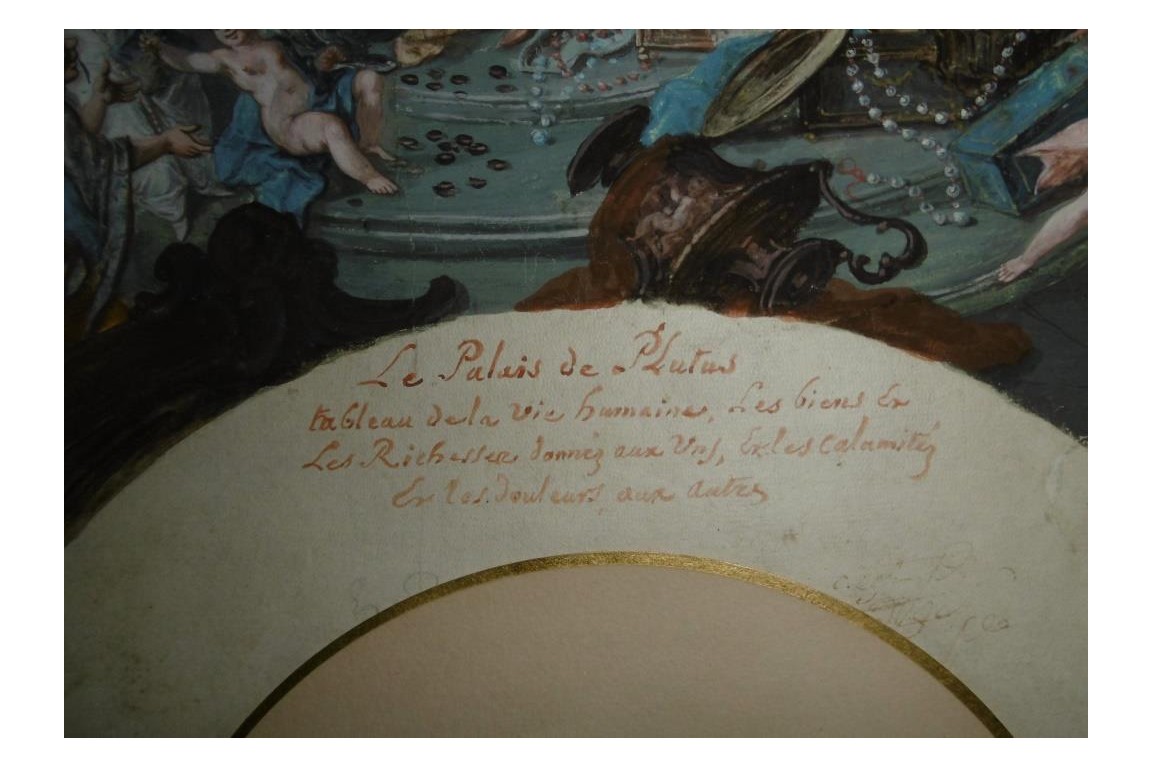 Le Palais de PLutus
tableau de la vie humaine, Les biens Et
Les Richesses donnéz aux Uns, Et les calamitéz
Et les douleurs aux autres